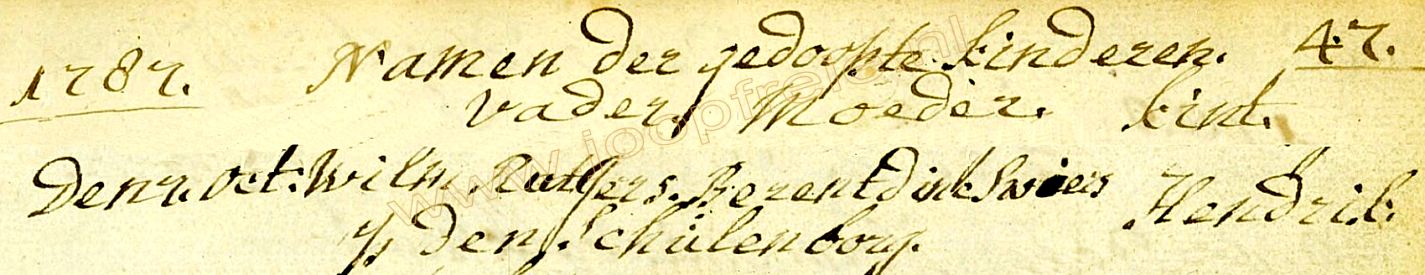 1787. Namen der gedoopte kinderen. 47.
vader, Moeder. kint.
Den 7. oct: Wilm Rutgers. Berentdink Swiers Hendrik.
den Schulenborg.
www.joopfrej.nl